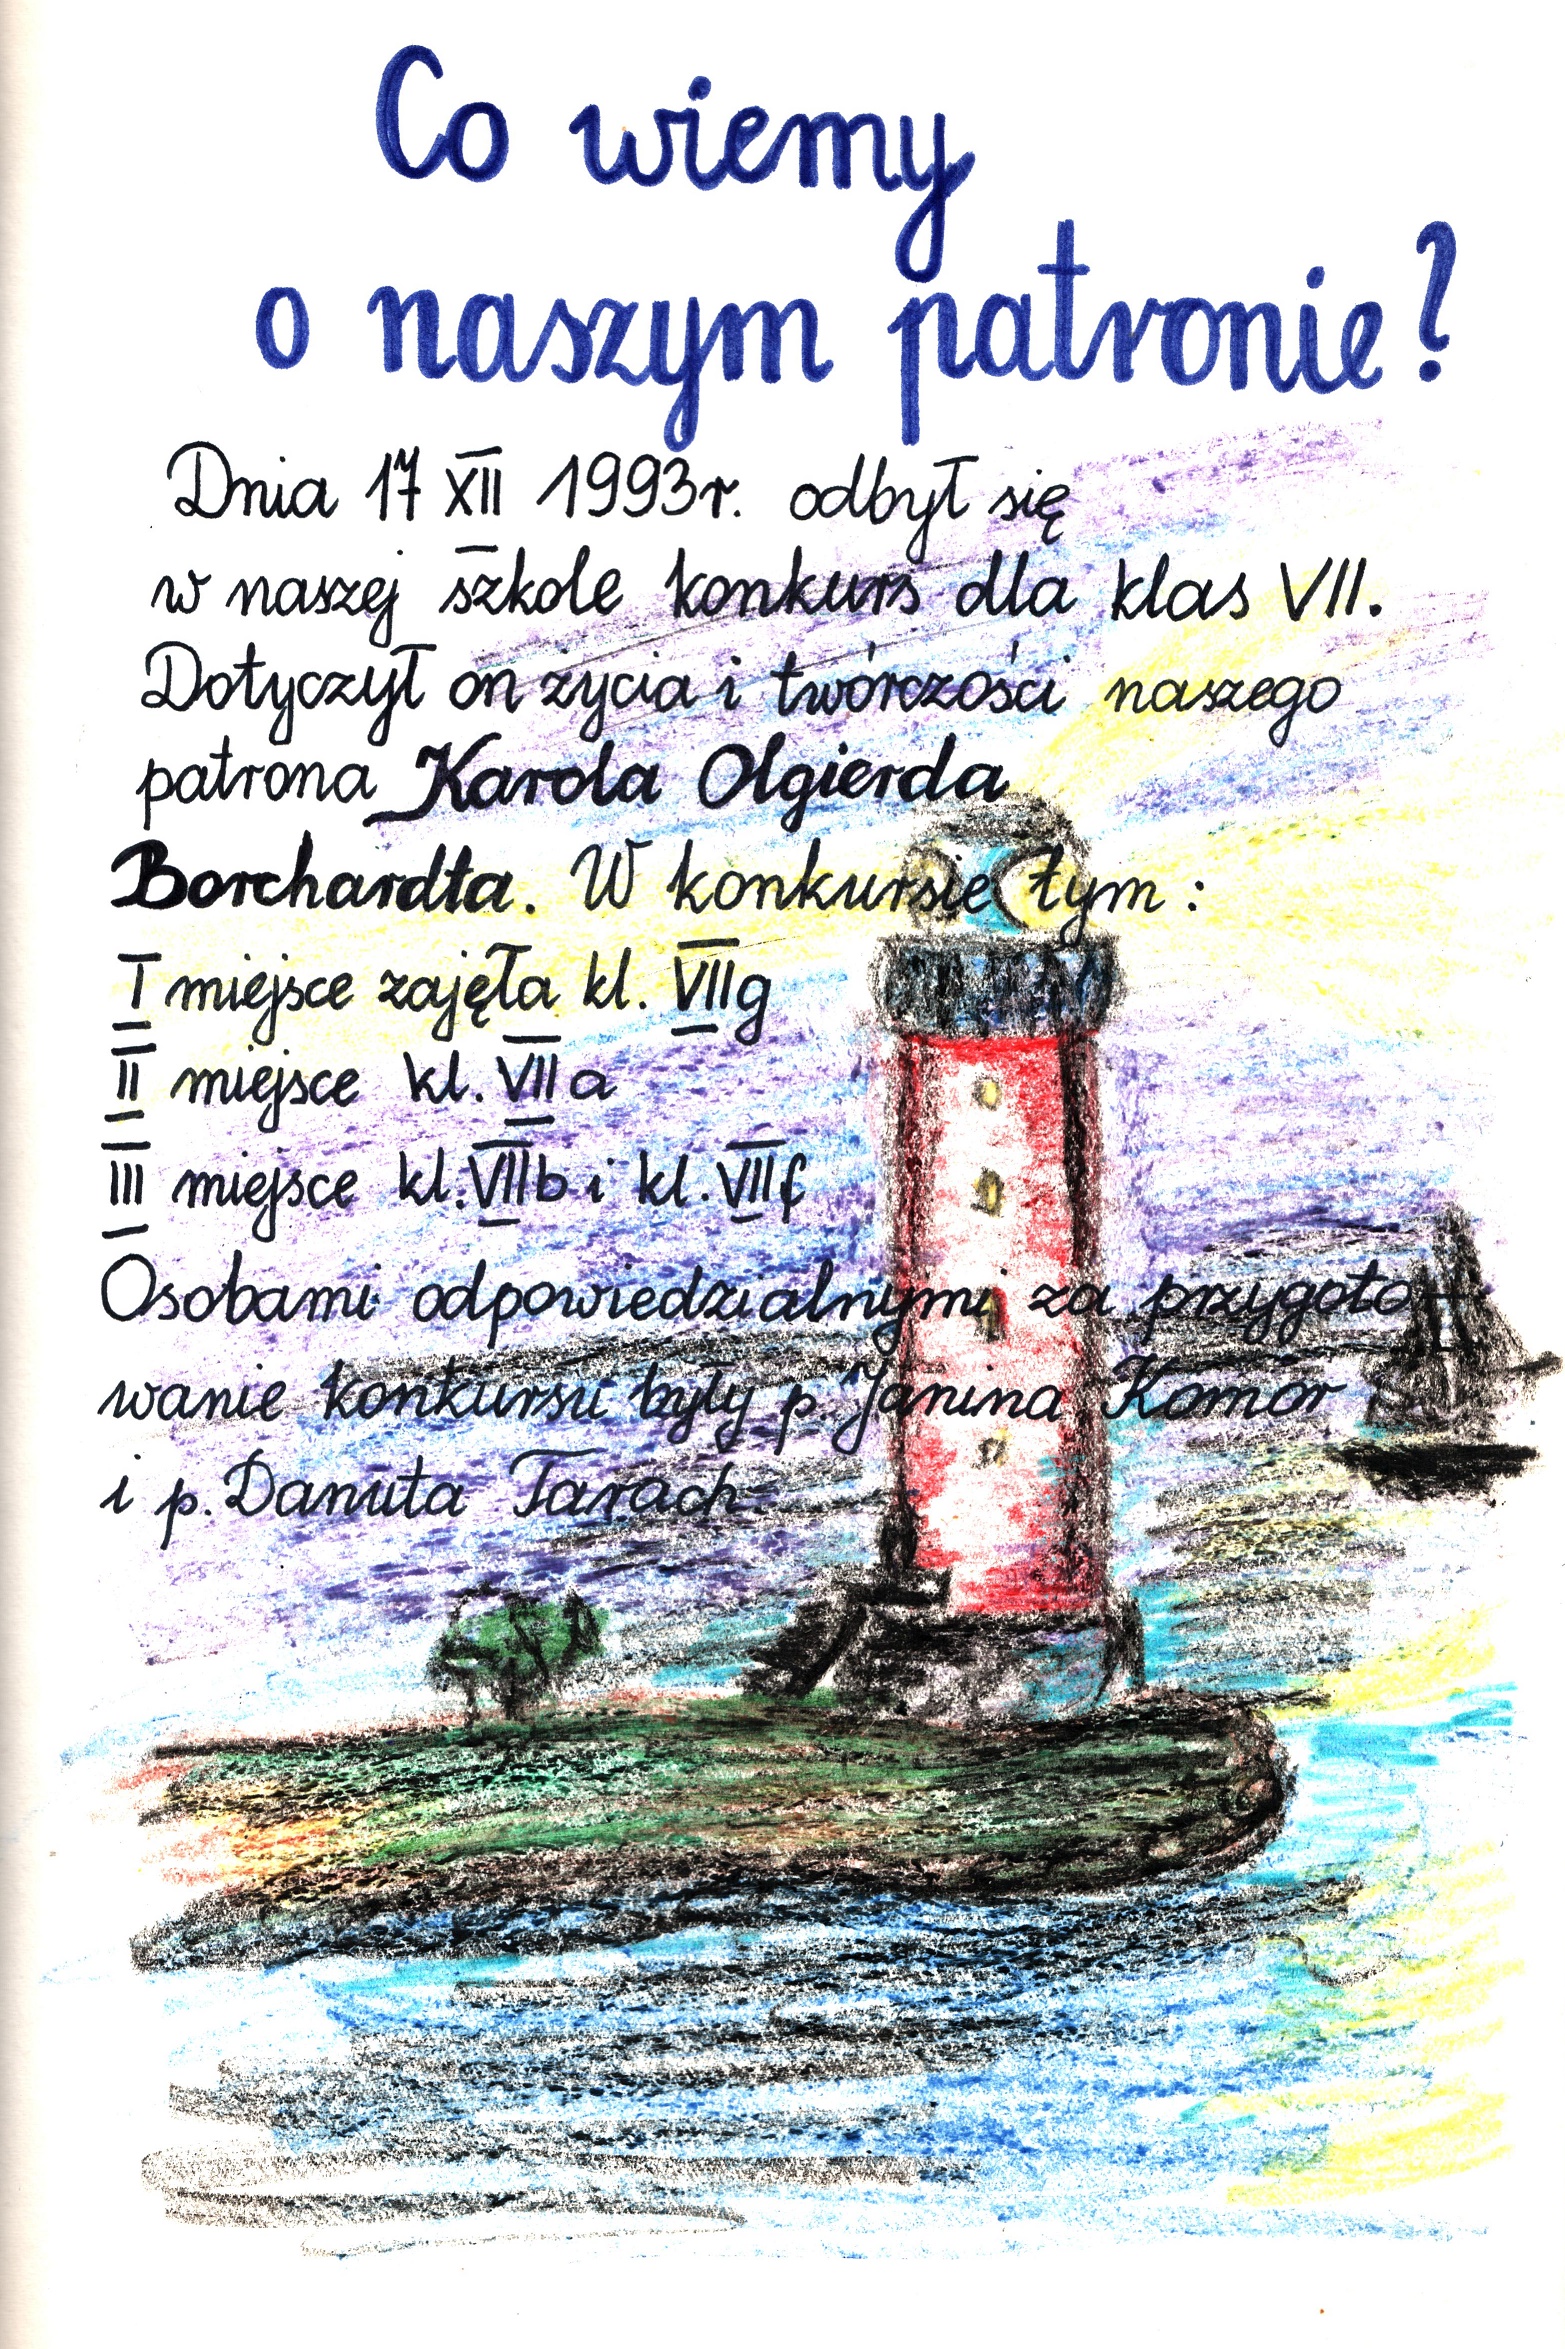 Co wiemy
o naszym patronie?
Dnia 17 XII 1993r. odbył się
w naszej szkole konkurs dla klas VII.
Dotyczył on życia i twórczości naszego
patrona Karola Olgierda
Borchardta. W konkursie tym:
I miejsce zajęła kl. VIIg
II miejsce kl. VIIa
III miejsce kl. VIIb i kl. VIIf
Osobami odpowiedzialnymi za przygoto-
wanie konkursu były p. Janina Komor
i p. Danuta Tarach.